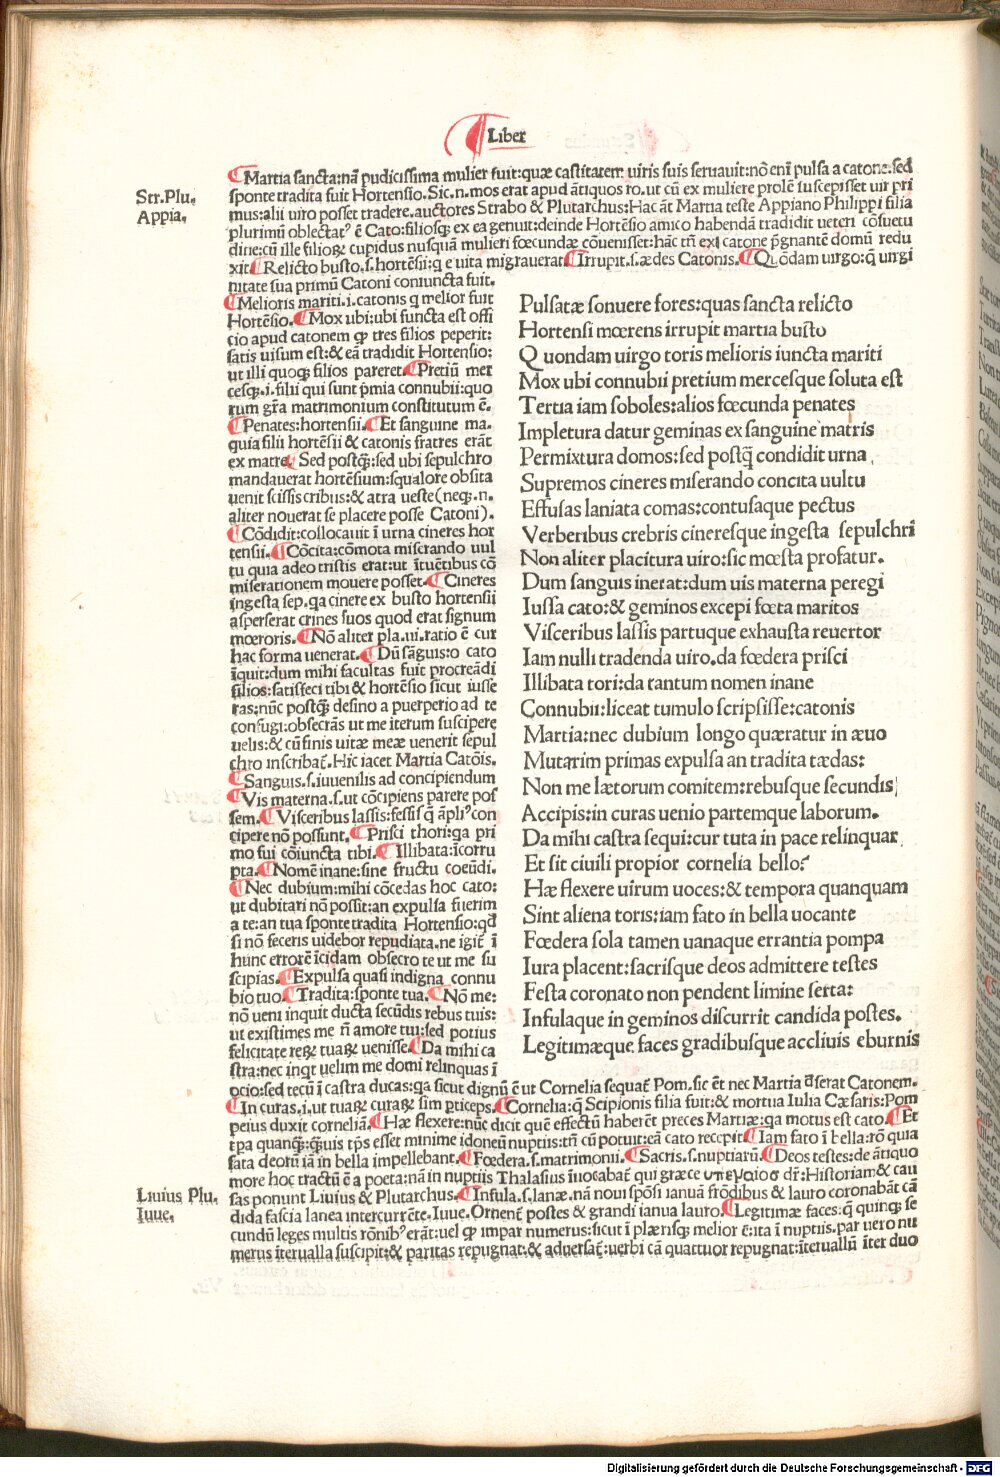 Liber
Str.Plu.
Appia.
Martia sancta:nã pudicissima mulier fuit:quæ castitatem uiris suis seruauit:nõ eni pulsa a catone.sed
sponte tradita fuit Hortensio.Sic.n.mos erat apud ãtiquos ro.ut cũ ex muliere prolẽ suscepisset uir pri
mus:alii uiro posset tradere.auctores Strabo & Plutarchus:Hac ãt Martia teste Appiano Philippi filia
plurimũ oblectatꝰ ẽ Cato:filiosqꝫ ex ea genuit:deinde Hortẽsio amico habendã tradidit ueteri cõsuetu
dine:cũ ille filioꝝ cupidus nusquã mulieri fœcundæ cõuenisset:hãc tñ exĩ catone p̃gnantẽ domũ redu
xit Relicto busto.s.hortẽsii:q e uita migrauerat Irrupit.s.ædes Catonis. Quõdam uirgo:q̃ uirgi
nitate sua primũ Catoni coniuncta fuit.
Melioris mariti.i.catonis q melior fuit
Hortẽsio. Mox ubi:ubi functa est offi
cio apud catonem qꝫ tres filios peperit:
satis uisum est:& eã tradidit Hortensio:
ut illi quoqꝫ filios pareret. Pretiũ mer
cesqꝫ.i.filii qui sunt p̃mia connubii:quo
rum gr̃a matrimonium constitutum ẽ.
Penates:hortensii. Et sanguine ma.
quia filii hortẽsii & catonis fratres erãt
ex matre Sed postqꝫ:sed ubi sepulchro
mandauerat hortẽsium:squalore obsita
uenit scissis cribus:& atra ueste(neqꝫ.n.
aliter nouerat se placere posse Catoni).
Cõdidit:collocauit ĩ urna cineres hor
tensii. Cõcita:cõmota miserando uul
tu quia adeo tristis erat:ut ĩtuẽtibus cõ
miserationem mouere posset. Cineres
ingesta sep.qa cinere ex busto hortensii
asperserat crines suos quod erat signum
mœroris. Nõ aliter pla.ui.ratio ẽ cur
hac forma uenerat. Dũ sãguis:o cato
ĩquit:dum mihi facultas fuit procreãdi
filios:satisfeci tibi & hortẽsio sicut iusse
ras:nũc postqꝫ desino a puerperio ad te
confugi:obsecrãs ut me iterum suscipere
uelis:& cũ finis uitæ meæ uenerit sepul
chro inscribat̃.Hic iacet Martia Catõis.
Sanguis.s.iuuenilis ad concipiendum
Vis materna.s.ut cõcipiens parere pos
sem. Visceribus lassis:fessis q̃ ãpliꝰ con
cipere nõ possunt. Prisci thori:qa pri
mo fui cõiuncta tibi. Illibata:ĩcorru
pta. Nomẽ inane:sine fructu coeũdi.
Nec dubium:mihi cõcedas hoc cato:
ut dubitari nõ possit:an expulsa fuerim
a te:an tua sponte tradita Hortensio:qđ
si nõ feceris uidebor repudiata.ne igit̃ ĩ
hunc errorẽ ĩcidam obsecro te ut me su
scipias. Expulsa quasi indigna connu
bio tuo. Tradita:sponte tua. Nõ me:
nõ ueni inquit ducta secũdis rebus tuis:
ut existimes me ñ amore tui:sed potius
felicitate reꝝ tuaꝝ uenisse. Da mihi ca
stra:nec inqt uelim me domi relinquas ĩ
Pulsatæ sonuere fores:quas sancta relicto
Hortensi mœrens irrupit martia busto
Quondam uirgo toris melioris iuncta mariti
Mox ubi connubii pretium mercesque soluta est
Tertia iam soboles:alios fœcunda penates
Impletura datur geminas ex sanguine matris
Permixtura domos:sed postq̃ condidit urna
Supremos cineres miserando concita uultu
Effusas laniata comas:contusaque pectus
Verberibus crebris cineresque ingesta sepulchri
Non aliter placitura uiro:sic mœsta profatur.
Dum sanguis inerat:dum uis materna peregi
Iussa cato:& geminos excepi fœta maritos
Visceribus lassis partuque exhausta reuertor
Iam nulli tradenda uiro.da fœdera prisci
Illibata tori:da tantum nomen inane
Connubii:liceat tumulo scripsisse:catonis
Martia:nec dubium longo quæratur in æuo
Mutarim primas expulsa an tradita tædas:
Non me lætorum comitem:rebusque secundis
Accipis:in curas uenio partemque laborum.
Da mihi castra sequi:cur tuta in pace relinquar
Et sit ciuili propior cornelia bello?
Hæ flexere uirum uoces:& tempora quanquam
Sint aliena toris:iam fato in bella uocante
Fœdera sola tamen uanaque errantia pompa
Iura placent:sacrisque deos admittere testes
Festa coronato non pendent limine serta:
Infulaque in geminos discurrit candida postes.
Legitimæque faces gradibusque accliuis eburnis
ocio:sed tecũ ĩ castra ducas:qa sicut dignũ ẽ ut Cornelia sequat̃ Pom.sic ẽt nec Martia đserat Catonem.
In curas.i.ut tuaꝝ curaꝝ sim pticeps. Cornelia:q̃ Scipionis filia fuit:& mortua Iulia Cæsaris:Pom
peius duxit corneliã. Hæ flexere:nũc dicit quẽ effectũ haberẽt preces Martiæ:qa motus est cato. Et
tpa quanqꝫ:qꝫuis tp̃s esset minime idoneũ nuptiis:tñ cũ potuit:eã cato recepit Iam fato ĩ bella:rõ quia
fata deorũ iã in bella impellebant. Fœdera.s.matrimonii. Sacris.s.nuptiarũ. Deos testes:de ãtiquo
more hoc tractũ ẽ a poeta:nã in nuptiis Thalasius ĩuocabat̃ qui græce υπεναιοσ dr̃:Historiam & cau
sas ponunt Liuius & Plutarchus. Infula.s.lanæ.nã noui spõsi ianuã frõdibus & lauro coronabãt cã
dida fascia lanea intercurrẽte.Iuue.Ornent̃ postes & grandi ianua lauro. Legitimæ faces:q̃ quinqꝫ se
cundũ leges multis rõnibꝰ erãt:uel qꝫ impar numerus:sicut ĩ plærisqꝫ melior ẽ:ita ĩ nuptiis.par uero nu
merus ĩterualla suscipit:& paritas repugnat:& aduersat̃:uerbi cã quattuor repugnat:ĩteruallũ iter duo
Liuius Plu.
Iuue.
Digitalisierung gefördert durch die Deutsche Forschungsgemeinschaft - DFG